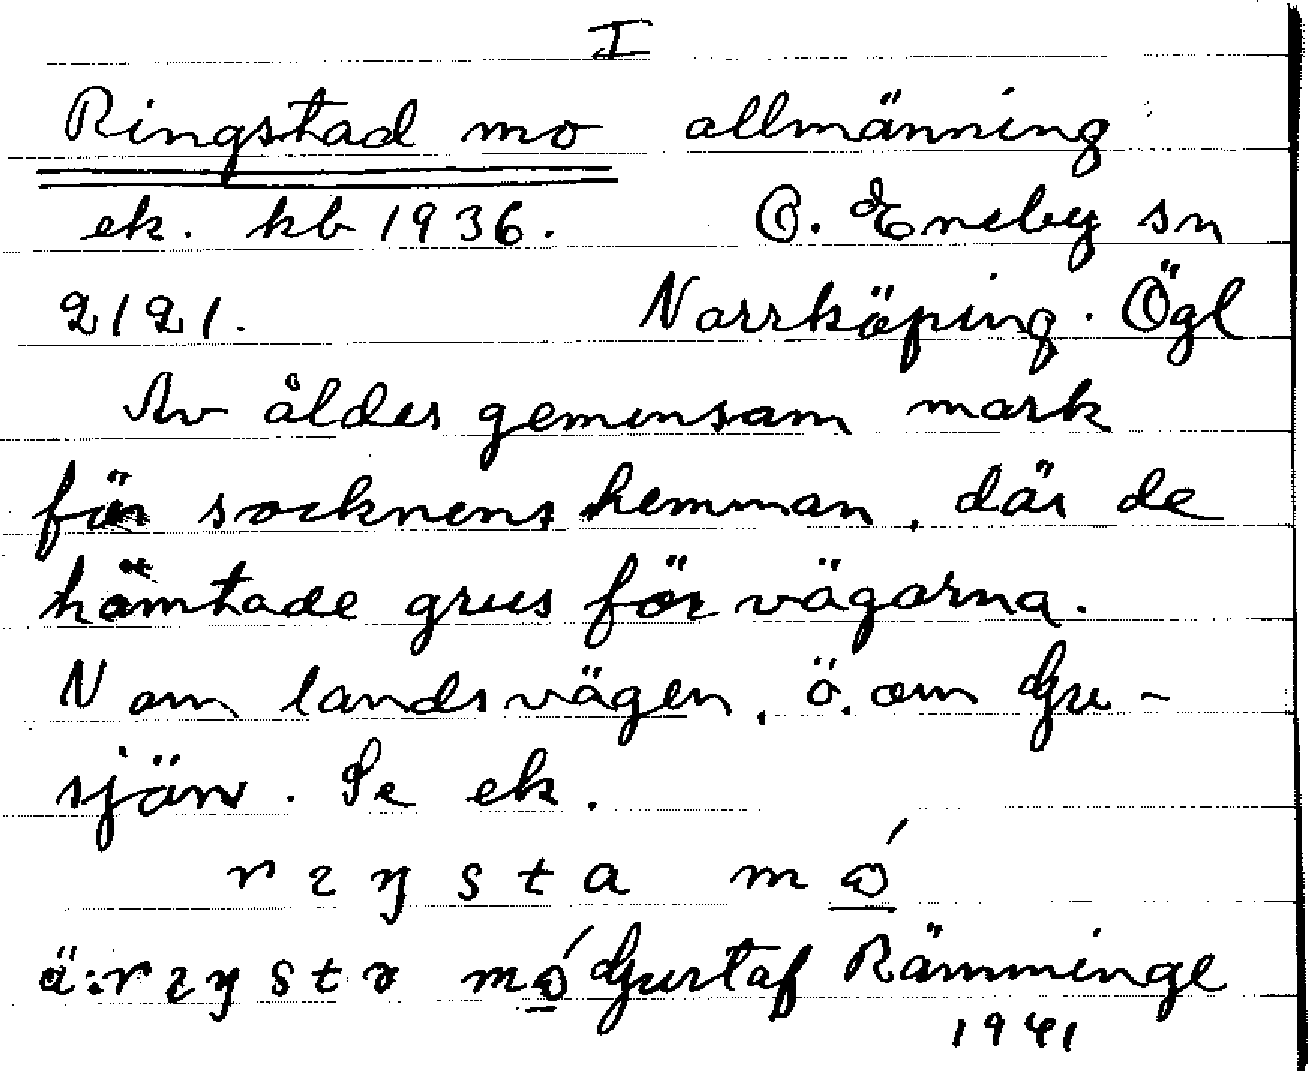 I
Ringstad mo allmänning
ek. kb 1936. Ö. Eneby sn
2121. Norrköping. Ögl
Av ålder gemensam mark
för socknens hemman, där de
hämtade grus för vägarna.
N om landsvägen, ö. om Gu-
sjön. Se ek.
Gustaf Rämminge
1941